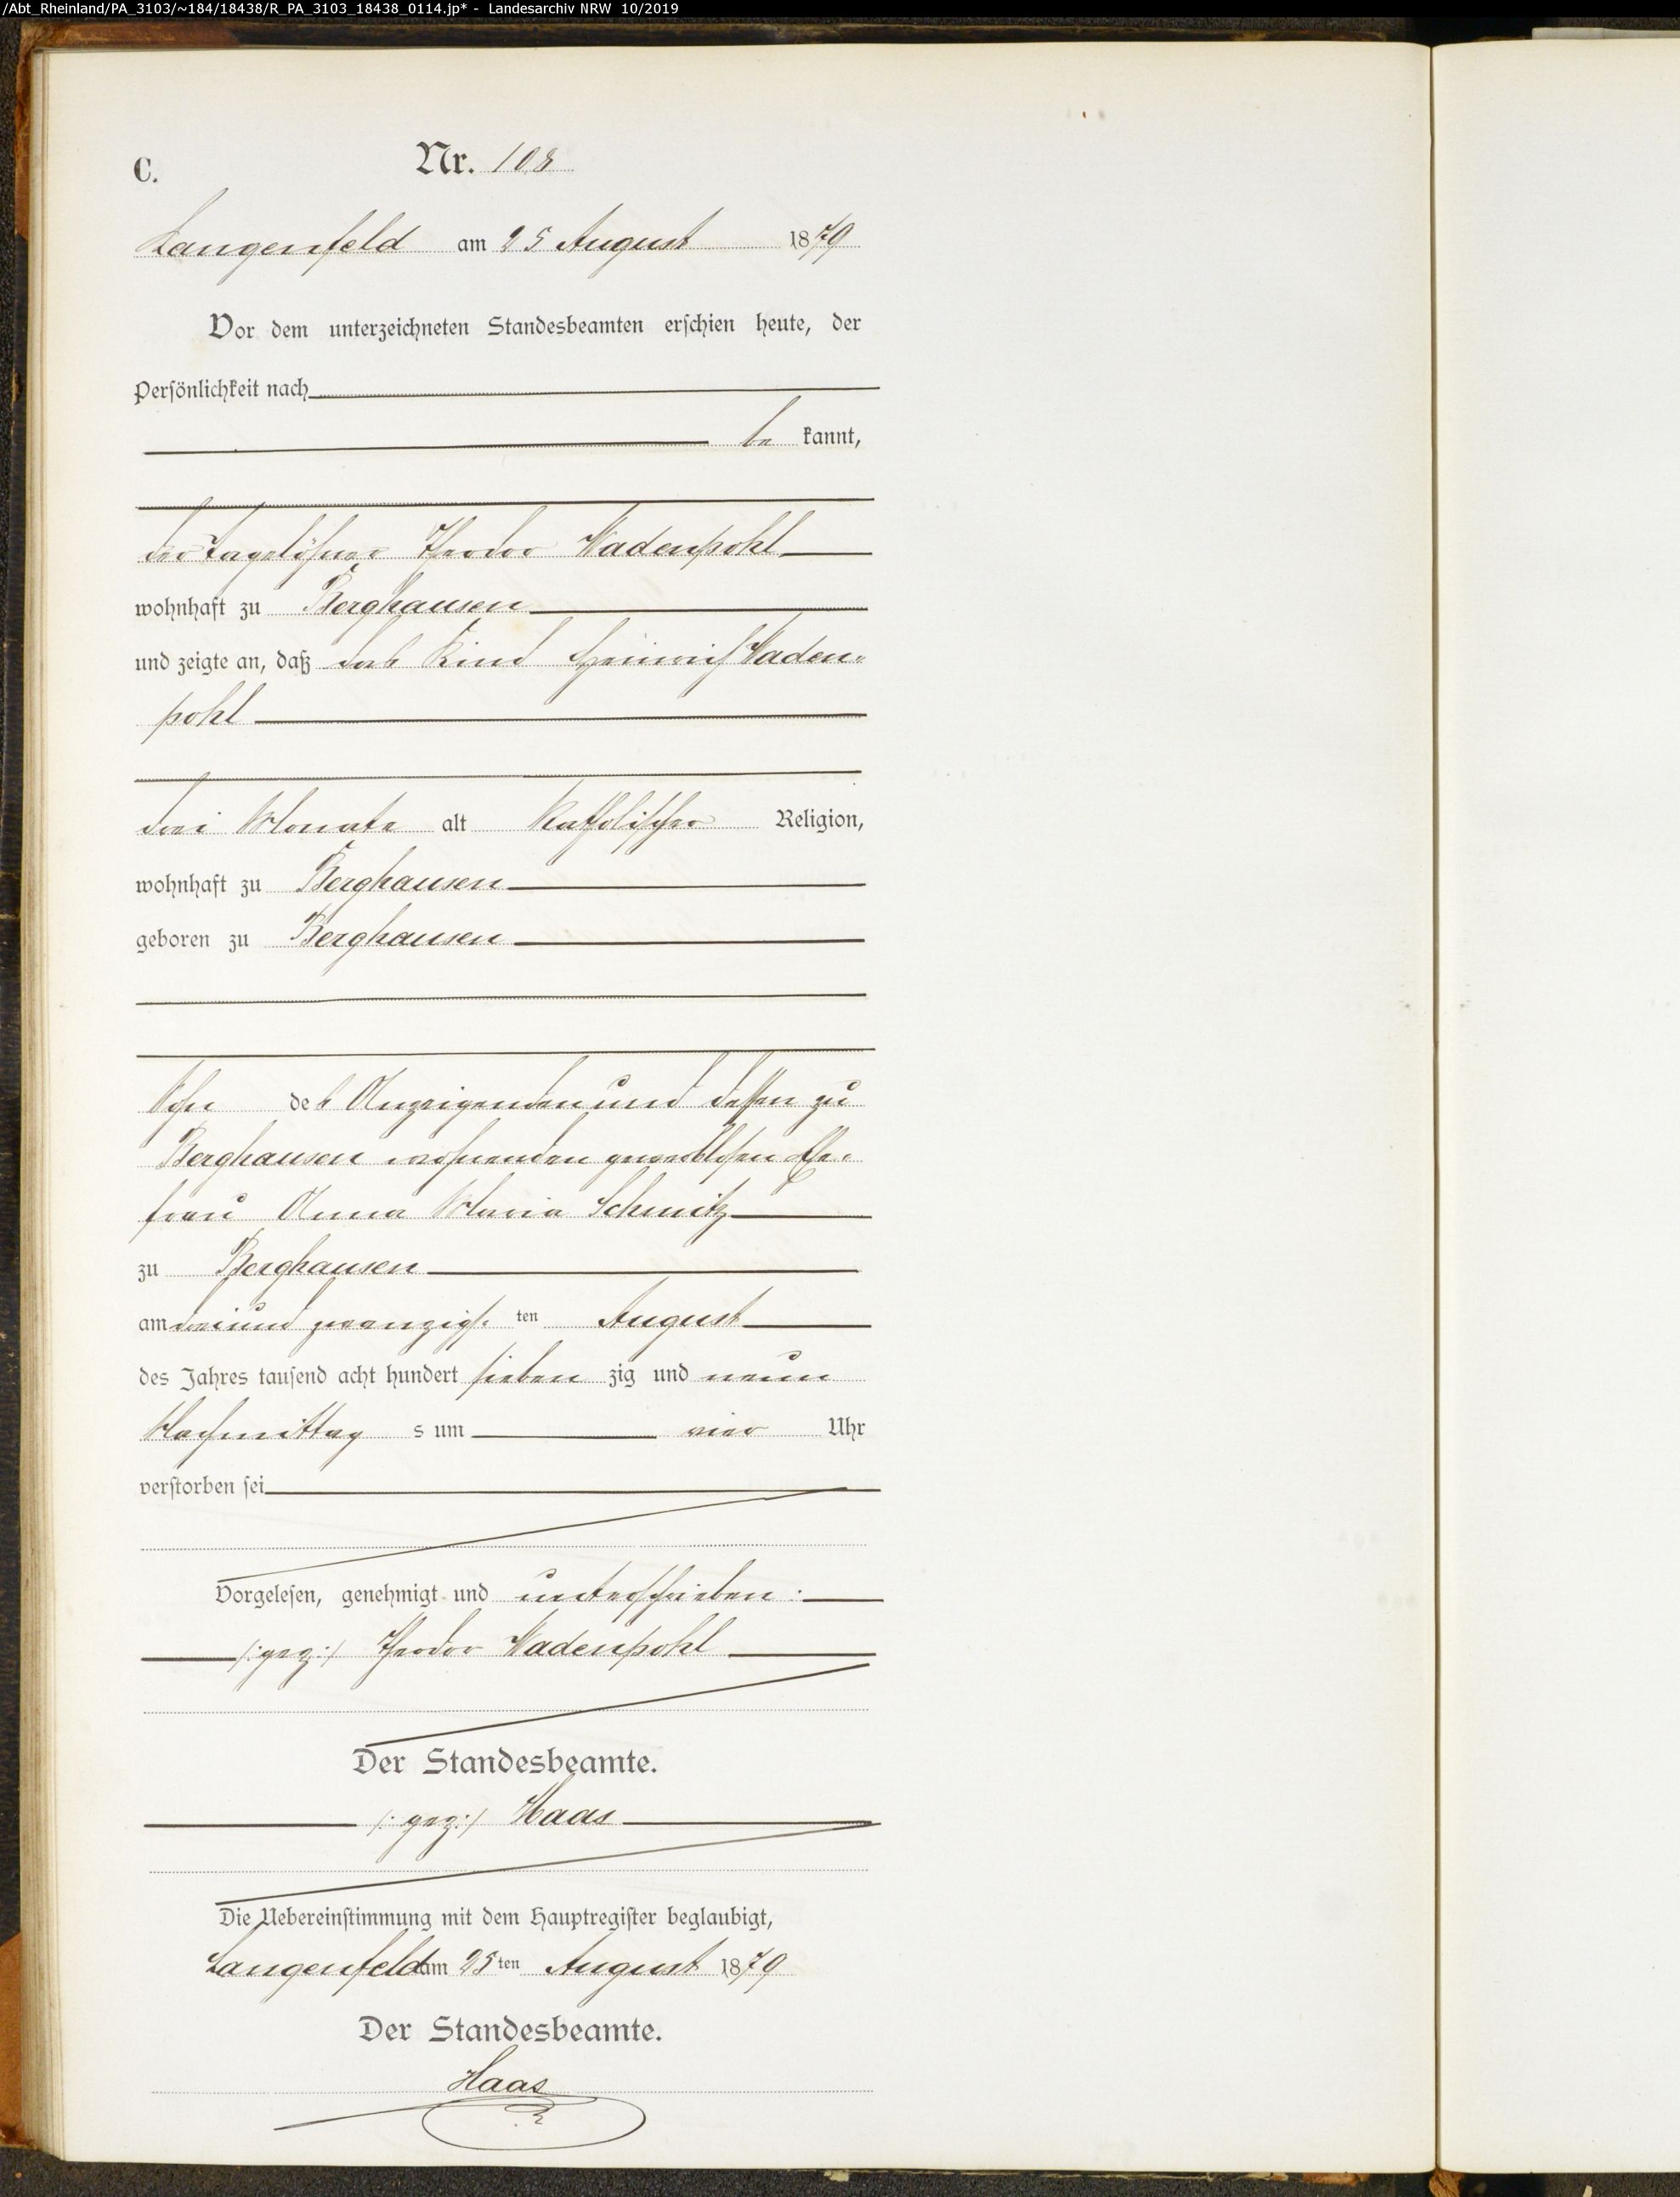 /Abt_Rheinland/PA_3103/~184/18438/R_PA_3103_18438_0114.jp* - Landesarchiv NRW 10/2019
C.
Nr. 108
Langenfeld am 25 August 1879
Vor dem unterzeichneten Standesbeamten erschien heute, der
Persönlichkeit nach
be kannt,
der Tagelöhner Theodor Wadenpohl
wohnhaft zu Berghausen
und zeigte an, daß das Kind Heinrich Waden-
pohl
drei Monate alt katholischer Religion,
wohnhaft zu Berghausen
geboren zu Berghausen
Sohn des Anzeigenden und dessen zu
Berghausen wohnenden gewerblosen Ehe-
frau Anna Maria Schmitz
zu Berghausen
am dreiundzwanzigs ten August
des Jahres tausend acht hundert sieben zig und neun
Nachmittag s um vier Uhr
verstorben sei
Vorgelesen, genehmigt und unterschrieben:
/:gez:/ Theodor Wadenpohl
Der Standesbeamte.
/:gez:/ Haas
Die Uebereinstimmung mit dem Hauptregister beglaubigt,
Langenfeld am 25ten August 1879
Der Standesbeamte.
Haas